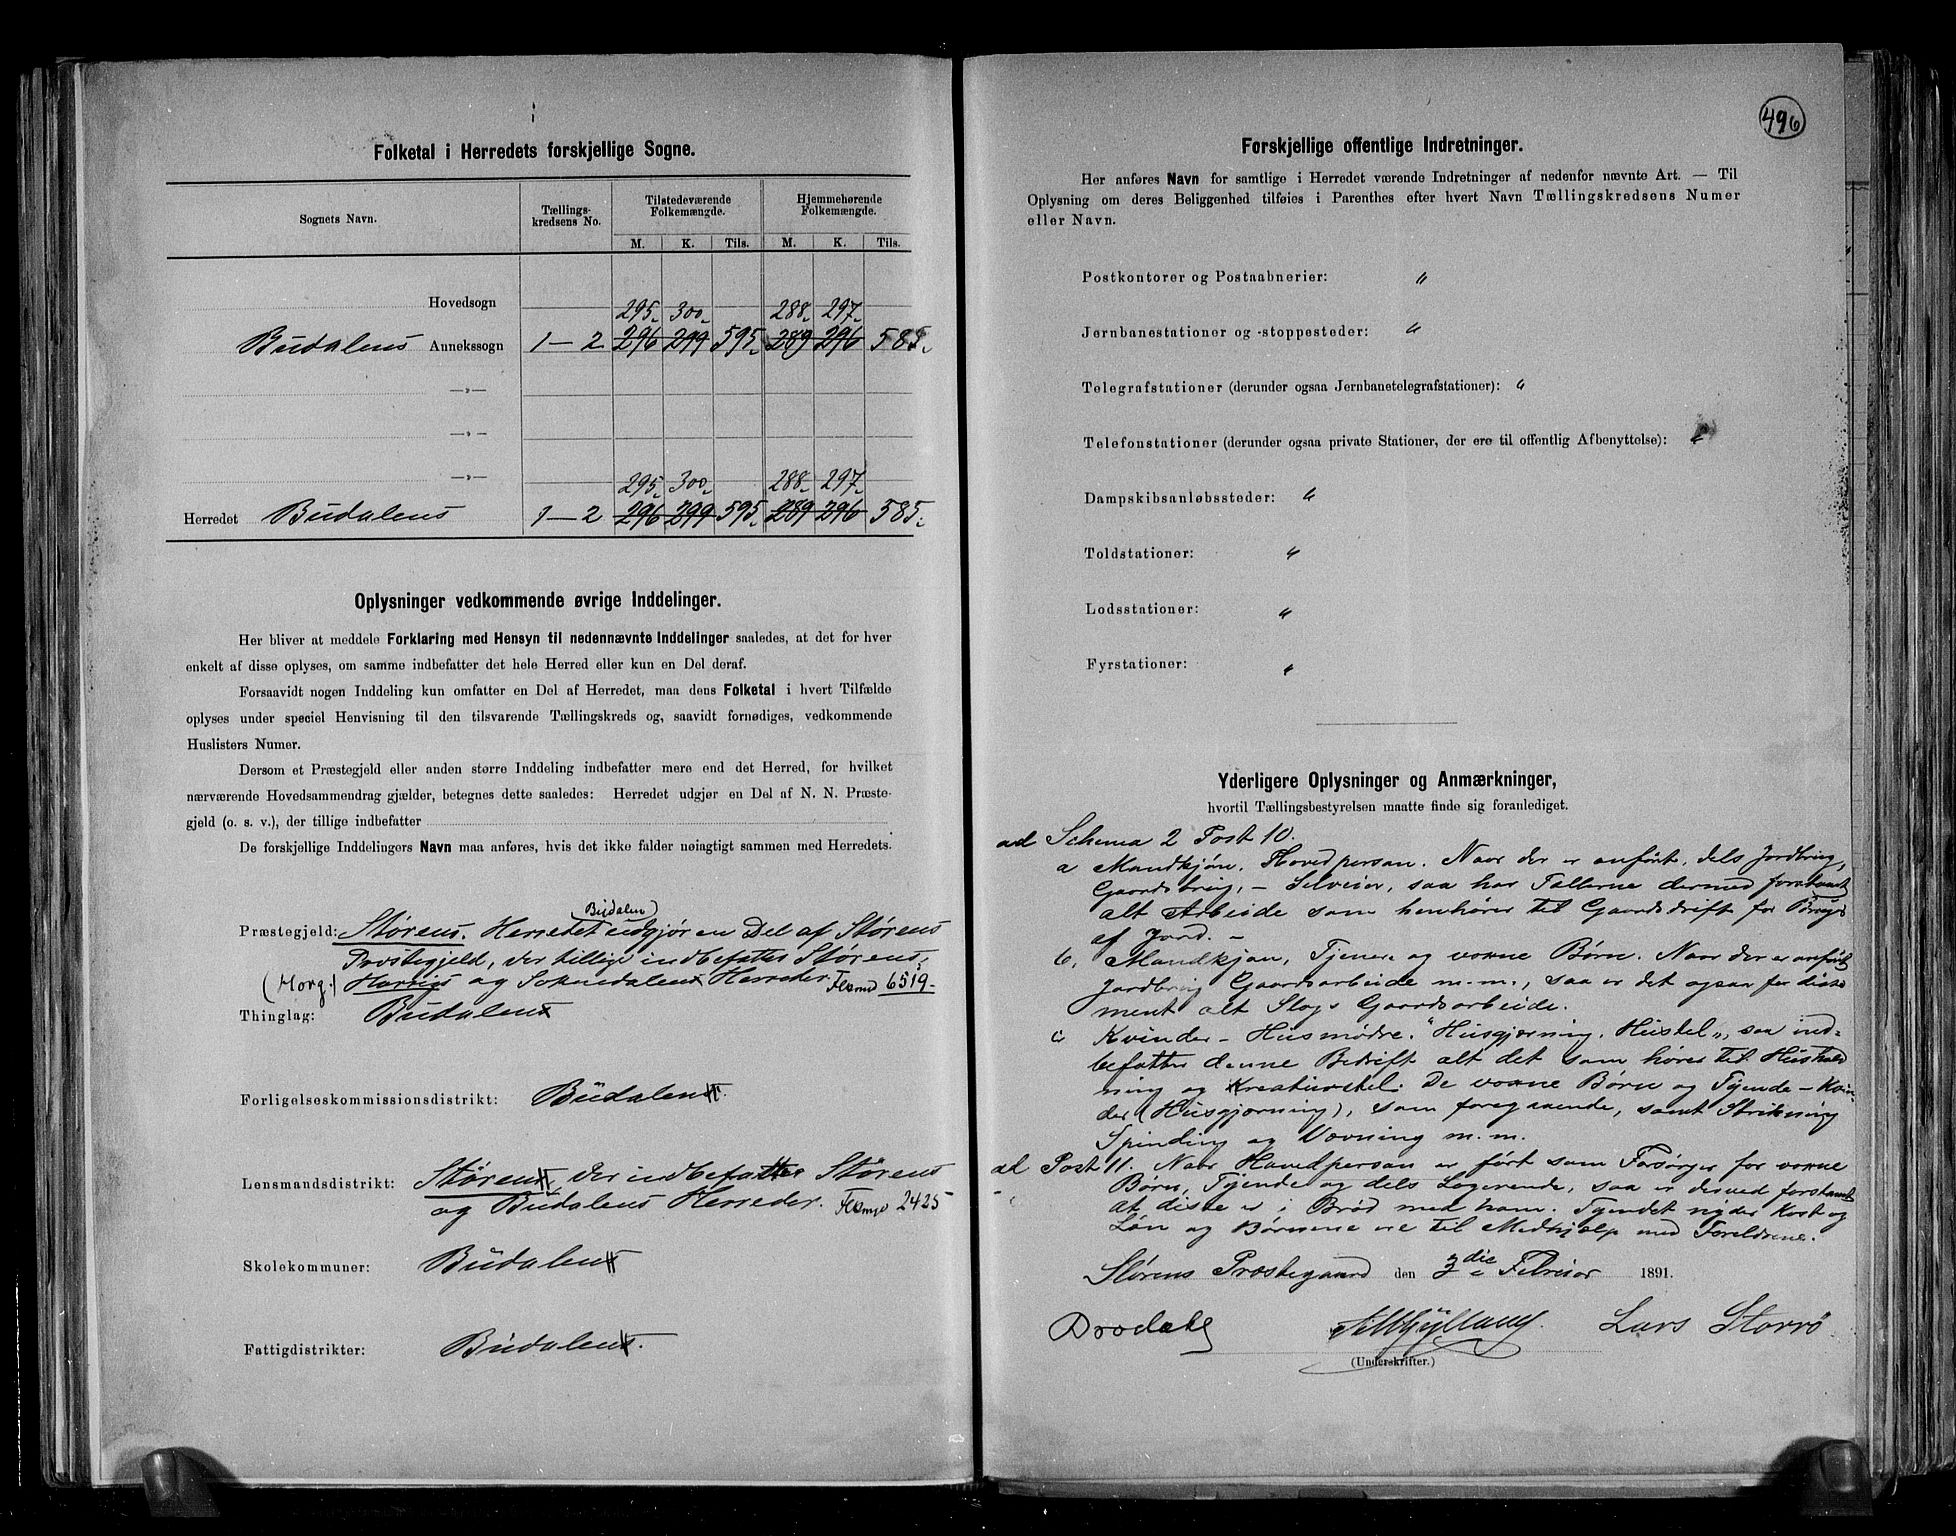 Folketal i Herredets forskjellige Sogne.
Sognets Navn. Tællings-kredsens No. Tilstedeværende Folkemængde. Hjemmehørende Folkemængde.
M. K. Tils. M. K. Tils.
Hovedsogn
295 300 288 297
Budalens Annekssogn 1–2 296 299 595 289 296 585
—„—
—„—
—„—
295 300 288 297
Herredet Budalens 1–2 296 299 595 289 296 585
Oplysninger vedkommende øvrige Inddelinger.
Her bliver at meddele Forklaring med Hensyn til nedennævnte Inddelinger saaledes, at det for hver
enkelt af disse oplyses, om samme indbefatter det hele Herred eller kun en Del deraf.
Forsaavidt nogen Inddeling kun omfatter en Del af Herredet, maa dens Folketal i hvert Tilfælde
oplyses under speciel Henvisning til den tilsvarende Tællingskreds og, saavidt fornødiges, vedkommende
Huslisters Numer.
Dersom et Præstegjeld eller anden større Inddeling indbefatter mere end det Herred, for hvilket
nærværende Hovedsammendrag gjælder, betegnes dette saaledes: Herredet udgjør en Del af N. N. Præste-
gjeld (o. s. v.), der tillige indbefatter
De forskjellige Inddelingers Navn maa anføres, hvis det ikke falder nøiagtigt sammen med Herredets.
Budalen
Præstegjeld: Størens. Herredet udgjør en Del af Størens
Præstegjeld, der tillige indbefatter Størens,
(Horg.) Horrigs og Soknedalens Herreder. 6519
Thinglag: Budalens
Forligelseskommissionsdistrikt: Budalens.
Lensmandsdistrikt: Størens, der indbefatter Størens
og Budalens Herreder. 2425
Skolekommuner: Budalens
Fattigdistrikter: Budalens.
496
Forskjellige offentlige Indretninger.
Her anføres Navn for samtlige i Herredet værende Indretninger af nedenfor nævnte Art. — Til
Oplysning om deres Beliggenhed tilføies i Parenthes efter hvert Navn Tællingskredsens Numer
eller Navn.
Postkontorer og Postaabnerier: "
Jernbanestationer og -stoppesteder: "
Telegrafstationer (derunder ogsaa Jernbanetelegrafstationer): "
Telefonstationer (derunder ogsaa private Stationer, der ere til offentlig Afbenyttelse): "
Dampskibsanløbssteder: "
Toldstationer: "
Lodsstationer: "
Fyrstationer: "
Yderligere Oplysninger og Anmærkninger,
hvortil Tællingsbestyrelsen maatte finde sig foranlediget.
ad Schema 2 Post 10.
a Mandkjøn. Hovedperson. Naar der er anført, dels Jordbrug,
Gaardsbrug, – Selveier, saa har Tællerne dermed forstaaet
alt Arbeide som henhører til Gaardsdrift for Brugs
af Jord. –
b, Mandkjøn, Tjenere og voxne Børn. Naar der er anført
Jordbrug Gaardsarbeide m.m., saa er det ogsaa for disse
ment alt Slags Gaardsarbeide.
c Kvinder – Husmødre. "Husgjerning, Husstel", saa ind-
befatter denne Bedrift alt det som hører til Hushold
ning og Kreaturstel. De voxne Børn og Tjende – Kvin-
der (Husgjerning), som foregaaende, samt Strikning
Spinding og Vævning m.m.
ad Post 11. Naar Hovedperson er ført som Forsørger for voxne
Børn, Tjende og dels Logerende, saa er derved forstaaet
at disse er i Brød med ham. Tjendet nyder Kost og
Løn og Børnene ere til Medhjælp med Foreldrene.
Størens Præstegaard den 3die Februar 1891.
Lars Storrø
(Underskrifter.)